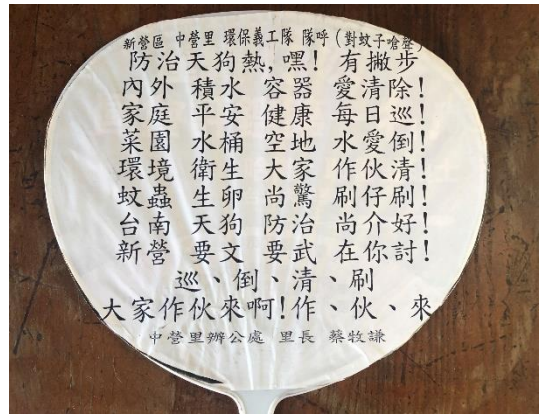 新營區 中營里 環保義工隊 隊呼(對蚊子嗆聲)
防治天狗熱,嘿! 有撇步
內外 積水 容器 愛清除!
家庭 平安 健康 每日巡!
菜園 水桶 空地 水愛倒!
環境 衛生 大家 作伙清!
蚊蟲 生卵 尚驚 刷仔刷!
台南 天狗 防治 尚介好!
新營 要文 要武 在你討!
巡、倒、清、刷
大家作伙來啊!作、伙、來
中營里辦公處 里長 蔡牧謙